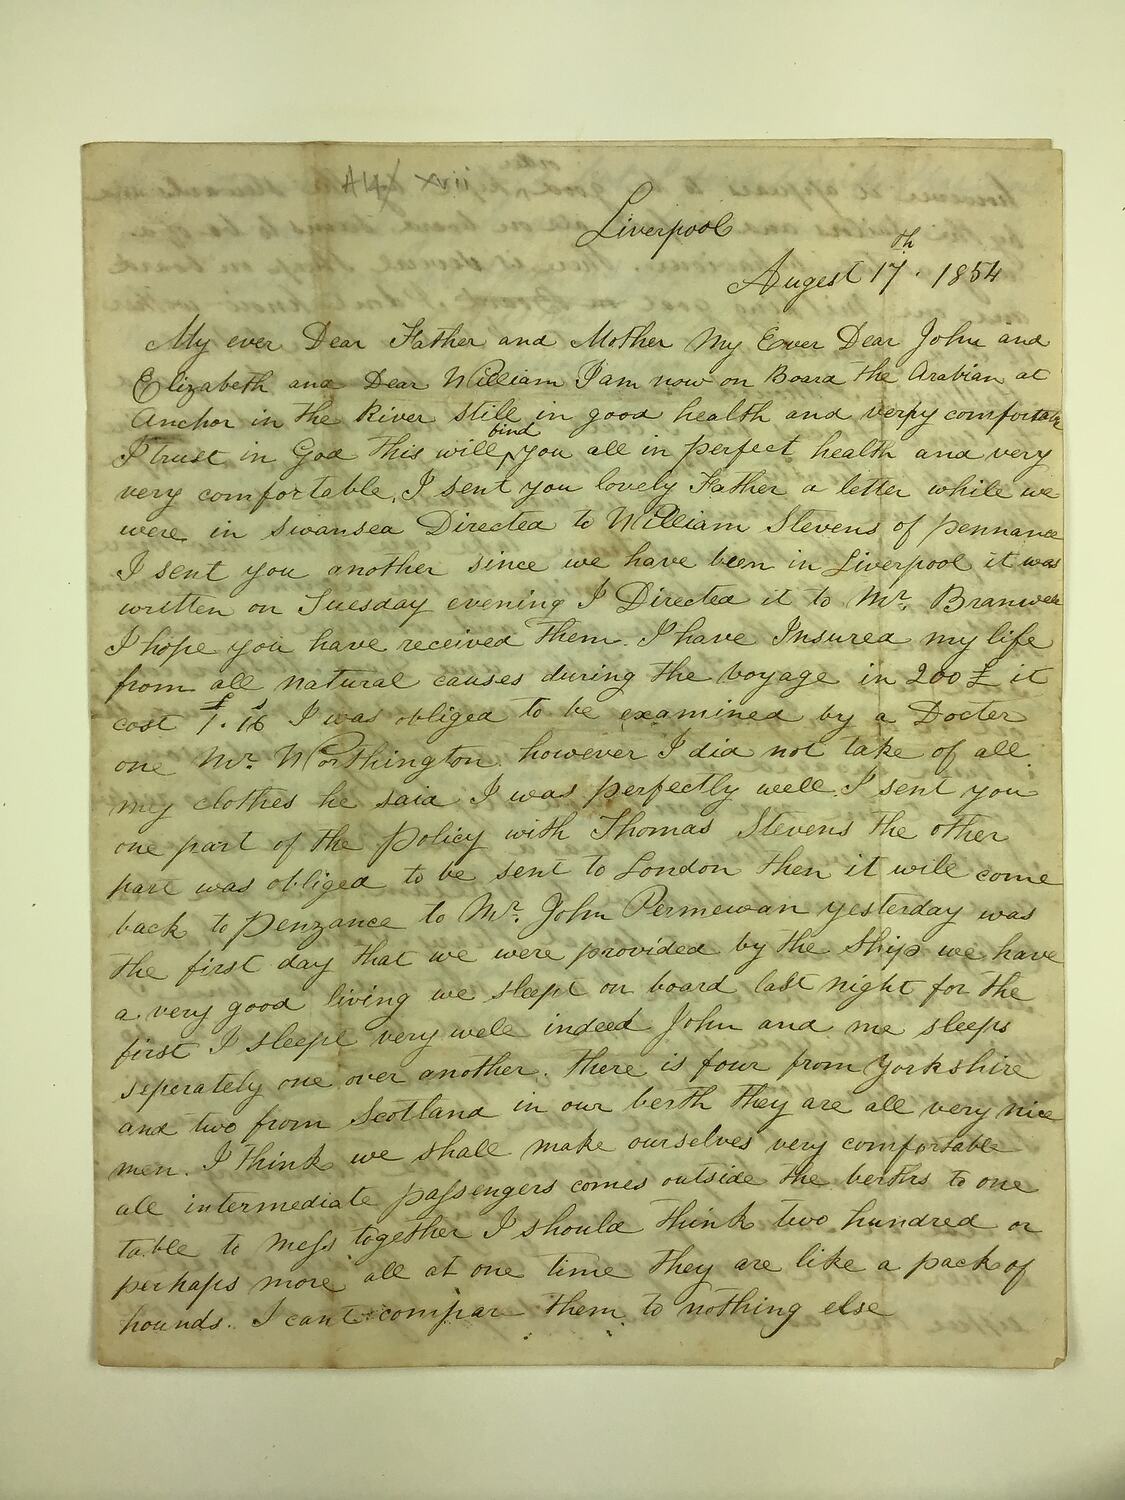 A14 xvii
Liverpool
Augest 17th. 1854
My ever Dear Father and Mother My Ever Dear John and
Elizabeth and Dear William I am now on Board the Arabian at
Anchor in the River still in good health and very comfortable
I trust in God this will find you all in perfect health and very
very comfortable, I sent you lovely Father a letter while we
were in Swansea Directed to William Stevens of pennance
I sent you another since we have been in Liverpool it was
written on Tuesday evening I Directed it to Mr. Branwell
I hope you have received them. I have Insured my life
from all natural causes during the voyage in 200 £ it
cost £1. s16 I was obliged to be examined by a Docter
one Mr. Worthington however I did not take of all
my clothes he said I was perfectly well. I sent you
one part of the policy with Thomas Stevens the other
part was obliged to be sent to London then it will come
back to penzance to Mr. John Permewan yesterday was
the first day that we were provided by the ship we have
a very good living we sleept on board last night for the
first I sleept very well indeed John and me sleeps
seperately one over another. there is four from yorkshire
and two from Scotland in our berth they are all very nice
men. I think we shall make ourselves very comfortable
all intermediate passengers comes outside the berths to one
table to mess together I should think two hundred or
perhaps more all at one time they are like a pack of
hounds. I cant compare them to nothing else